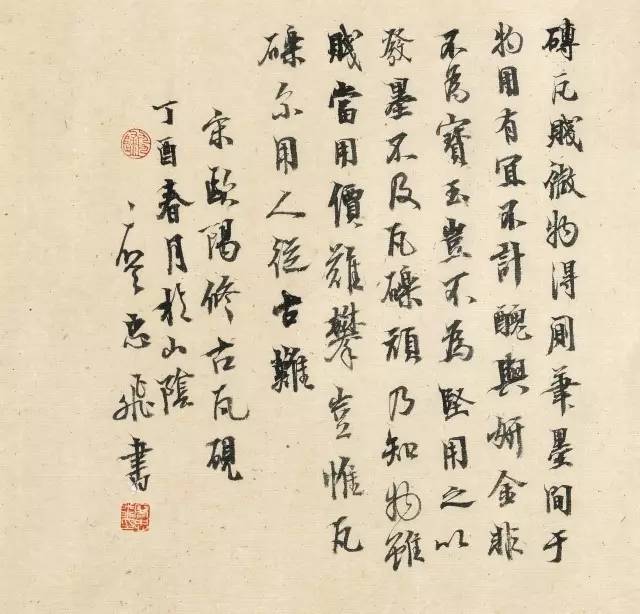 磚瓦賤微物得厠筆墨間于
物用有宜不計醜與妍金非
不為寶玉豈不為堅用之以
發墨不及瓦礫頑乃知物雖
賤當用價難攀豈惟瓦
礫尔用人從古難
宋歐陽修古瓦硯
丁酉春月於山陰
忠飛書